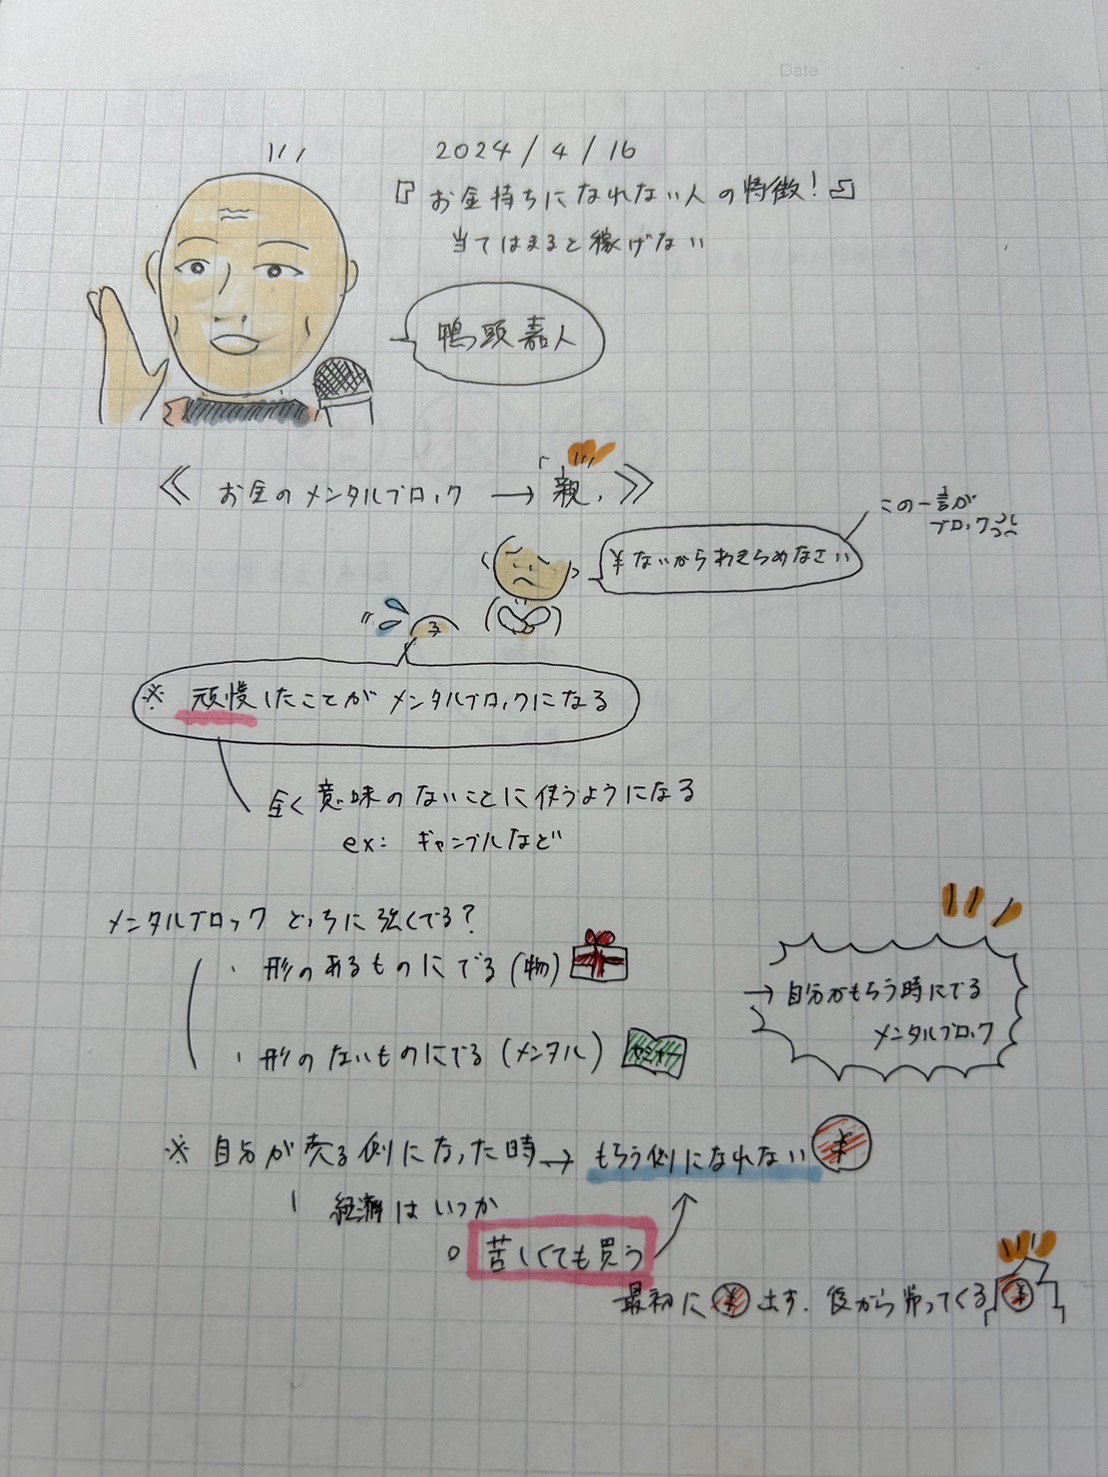 Date
2024/4/16
『お金持ちになれない人の特徴!』
当てはまると稼げない
鴨頭嘉人
《お金のメンタルブロック → 「親」》
この一言が
ブロック
¥ないからあきらめなさい
子
※ 頑慢したことがメンタルブロックになる
全く意味のないことに使うようになる
ex: ギャンブルなど
メンタルブロック どっちに強くでる?
・形のあるものにでる(物)
・形のないものにでる(メンタル)
セミナー
→ 自分がもらう時にでる
メンタルブロック
※ 自分が売る側になった時→ もらう側になれない ¥
経済はいつか
○ 苦しくても買う
最初に ¥ 出す. 後から帰ってくる ¥